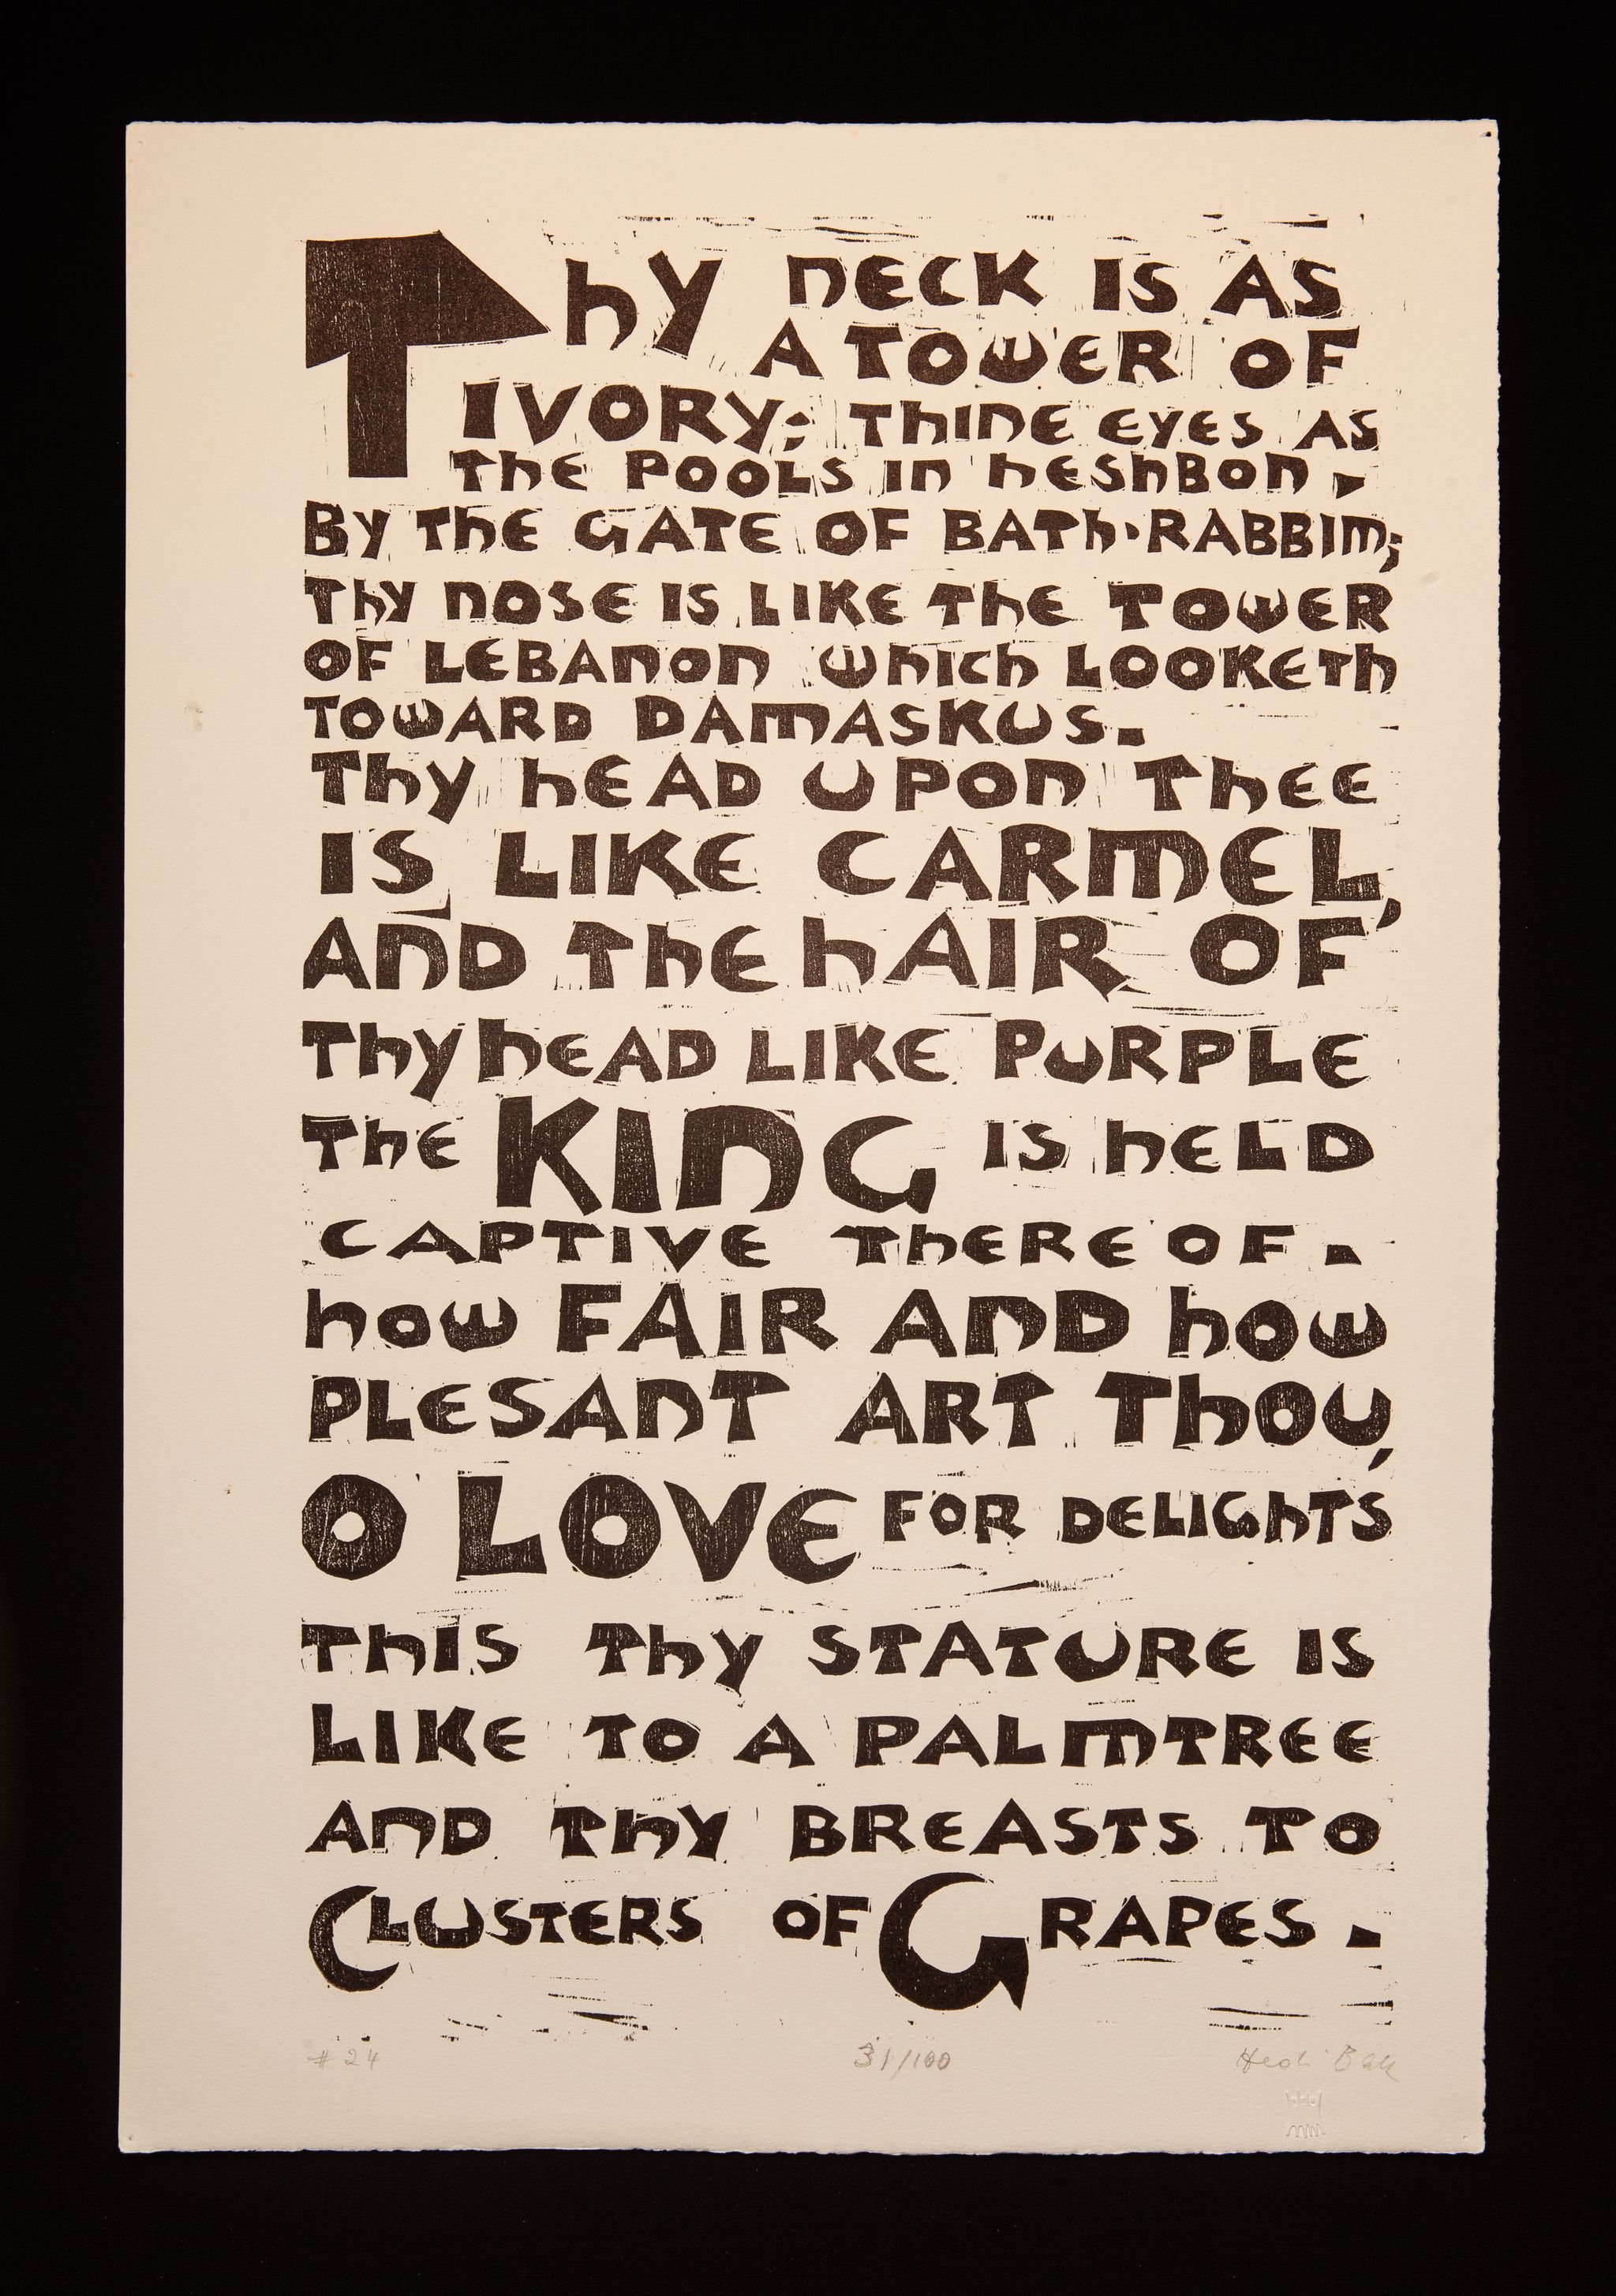 Thy NECK IS AS
A TOWER OF
IVORY; ThINE EYES AS
ThE POOLS IN hEShBON,
BY ThE GATE OF BATh·RABBIM;
ThY NOSE IS LIKE ThE TOWER
OF LEBANON WhICh LOOKETh
TOWARD DAMASKUS.
Thy hEAD UPON ThEE
IS LIKE CARMEL,
AND ThE hAIR OF
Thy hEAD LIKE PURPLE
ThE KING IS hELD
CAPTIVE ThEREOF.
hOW FAIR AND hOW
PLESANT ART ThOU,
O LOVE FOR DELIGhTS
ThIS Thy STATURE IS
LIKE TO A PALMTREE
AND ThY BREASTS TO
CLUSTERS OF GRAPES.
# 24 31/100 Hedi Bak